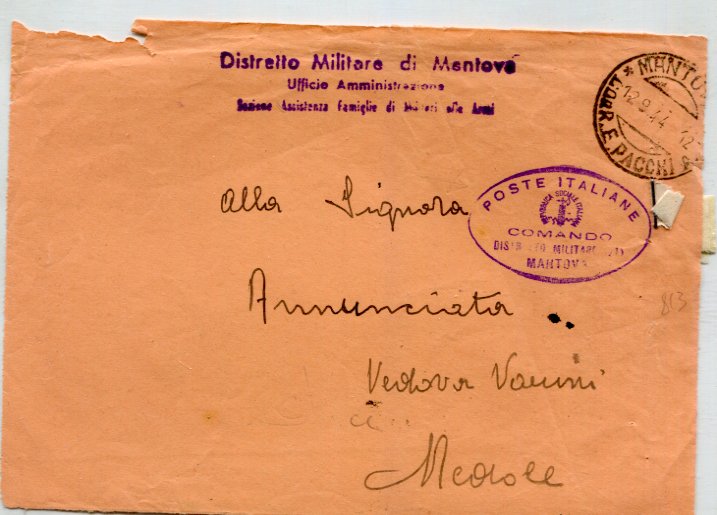 Distretto Militare di Mantova
Ufficio Amministrazione
Sezione Assistenza Famiglie di Militari alle Armi
* MANTO
CORR. E PACCHI
12.9.44 12
POSTE ITALIANE
REPUBBLICA SOCIALE ITALIANA
COMANDO
DISTRETTO MILITARE
MANTOVA
Alla Signora
Annunciata
813
Vedova Vanini
Medole